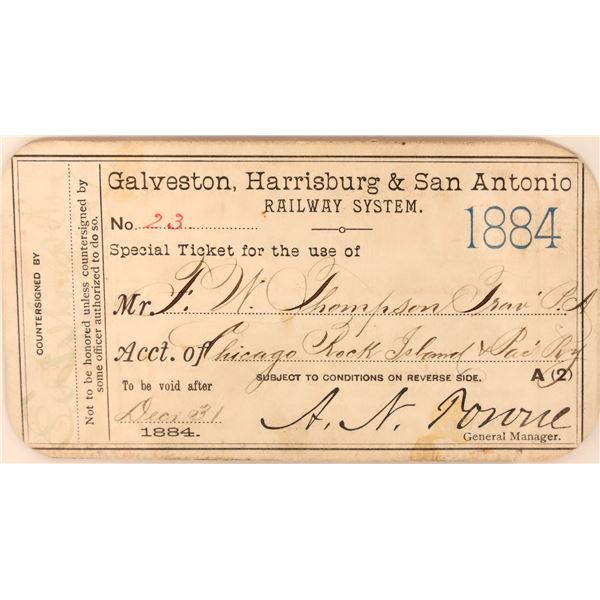 COUNTERSIGNED BY
Not to be honored unless countersigned by
some officer authorized to do so.
Galveston, Harrisburg & San Antonio
RAILWAY SYSTEM.
No. 23
1884
Special Ticket for the use of
Mr. F. W. Thompson Trav' P. A
Acct. of Chicago Rock Island & Pac Ry
To be void after
SUBJECT TO CONDITIONS ON REVERSE SIDE.
A (2)
Dec. 31
1884.
A. N. Towne
General Manager.